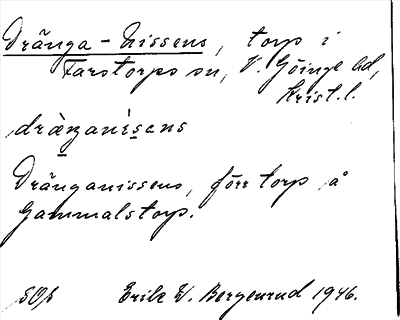 Dränga-Nissens, torp i
Farstorps sn, V. Göinge hd,
Krist.l.
dràŋaníṣens
Dränganissens, förr torp å
Gammalstorp.
Erik W. Bergenrud 1946.